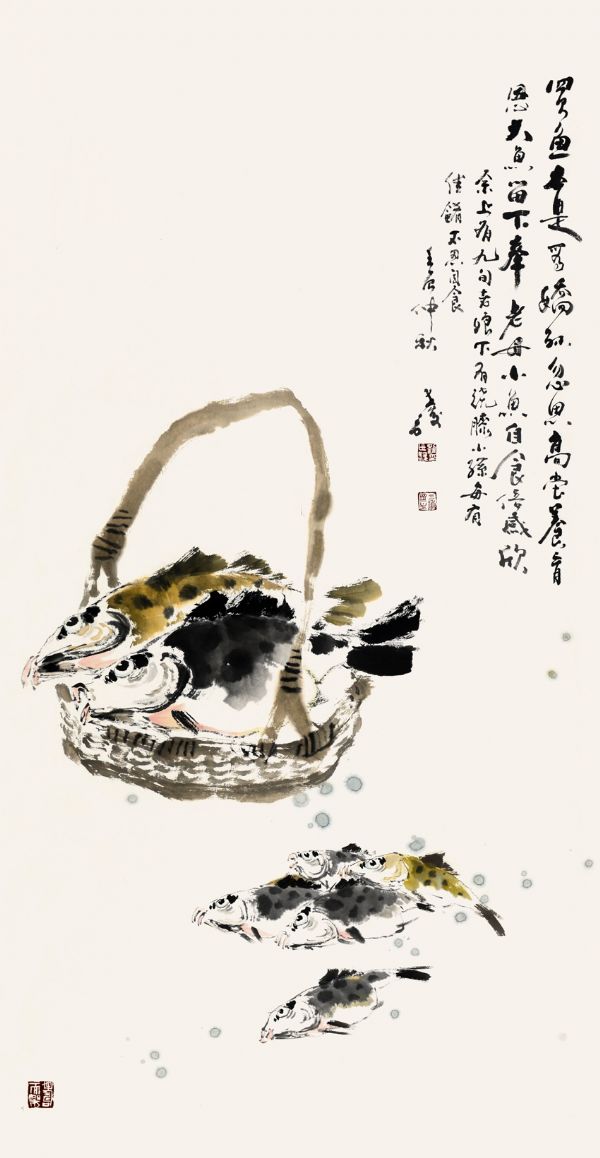 买鱼本是为娇孙忽思高堂养育
恩大鱼留下奉老母小鱼自食倍感欣
余上有九旬老娘下有绕膝小孙每有
佳餚不忍自食
壬辰仲秋